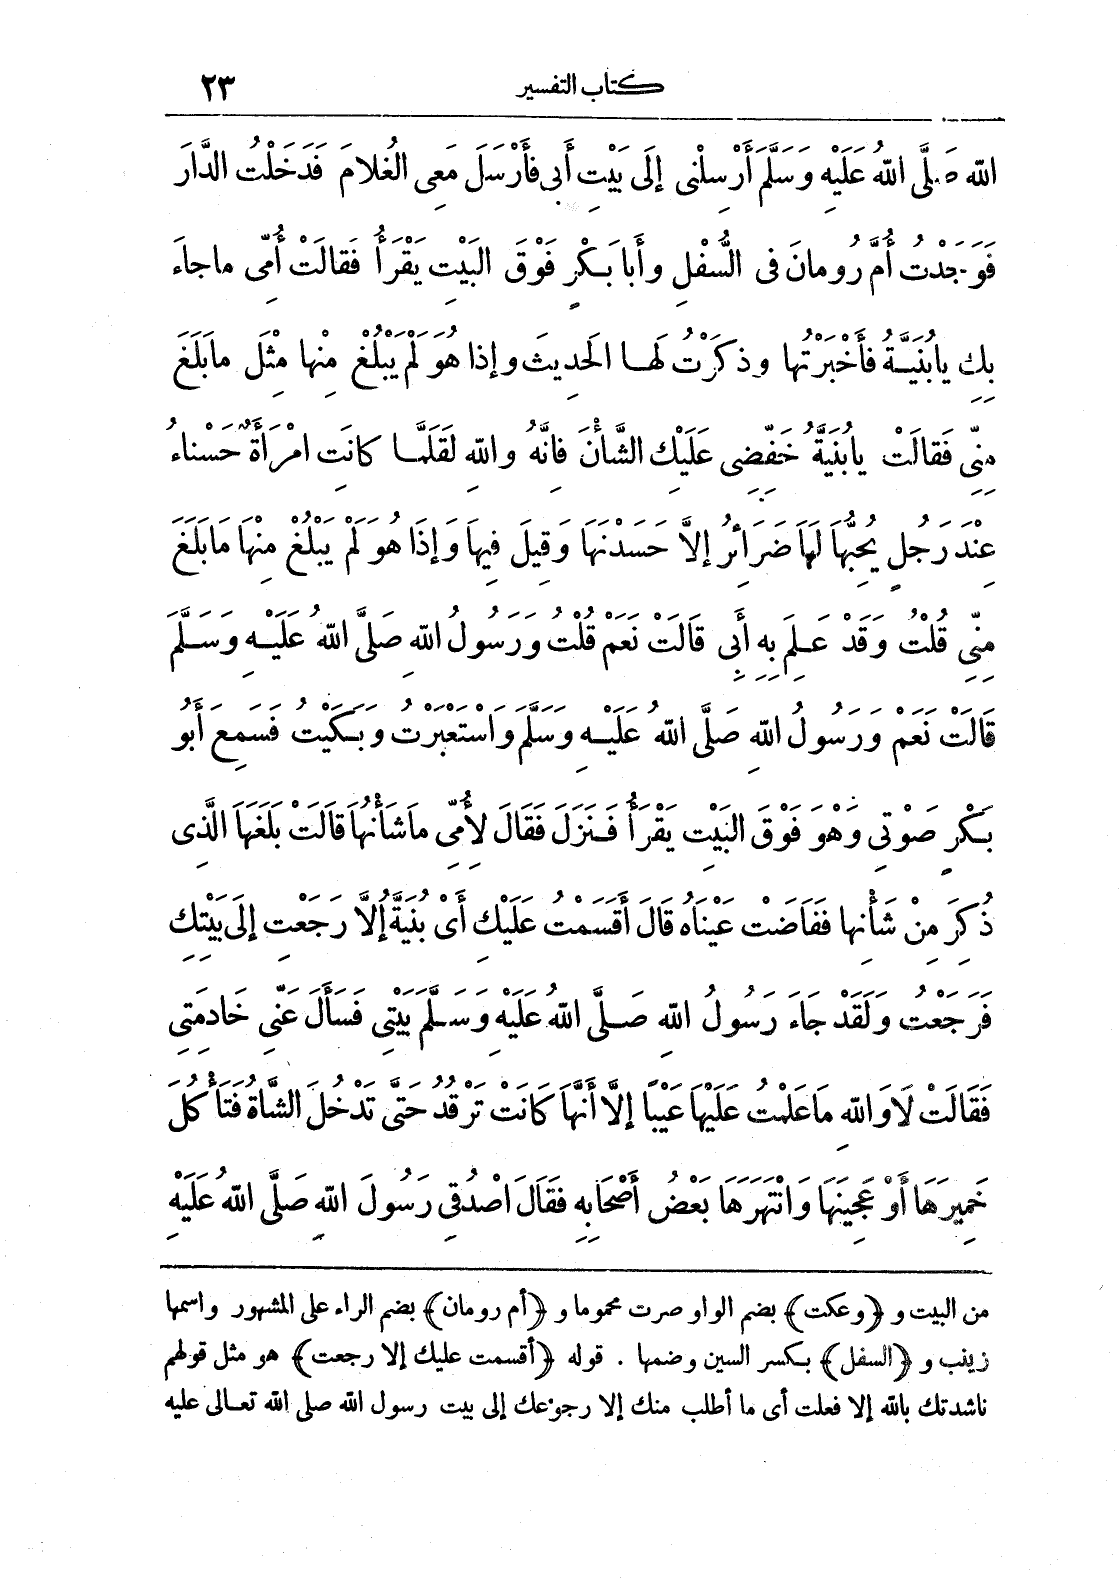 كتاب التفسير ٢٣
اللهِ صَلَّى اللهُ عَلَيْهِ وَسَلَّمَ أَرْسِلْنى إِلَى بَيْتِ أَبى فأَرْسَلَ مَعِى الغُلامَ فَدَخَلْتُ الدَّارَ
فَوَجَدْتُ أُمَّ رومانَ فى السُّفْلِ وأَبا بَكْرٍ فَوْقَ البَيْتِ يَقْرَأُ فَقالَتْ أُمِّى ماجاءَ
بِكِ يابُنَيَّةُ فأَخْبَرْتُها وذَكَرْتُ لَها الحَدِيثَ وإذا هُوَ لَمْ يَبْلُغْ مِنْها مِثْلَ مابَلَغَ
مِنِّى فَقالَتْ يابُنَيَّةُ خَفِّضِى عَلَيْكِ الشَّأْنَ فإنَّهُ واللهِ لقَلَّما كانَتِ امْرَأَةٌ حَسْناءُ
عِنْدَ رَجُلٍ يُحِبُّها لَها ضَرَائِرُ إلاَّ حَسَدْنَها وَقِيلَ فِيها وَإِذَا هُوَ لَمْ يَبْلُغْ مِنْها مَا بَلَغَ
مِنِّى قُلْتُ وَقَدْ عَلِمَ بِهِ أَبِى قَالَتْ نَعَمْ قُلْتُ وَرَسُولُ اللهِ صَلَّى اللهُ عَلَيْهِ وَسَلَّمَ
قَالَتْ نَعَمْ وَرَسُولُ اللهِ صَلَّى اللهُ عَلَيْهِ وَسَلَّمَ وَاسْتَعْبَرْتُ وَبَكَيْتُ فَسَمِعَ أَبُو
بَكْرٍ صَوْتِى وَهُوَ فَوْقَ البَيْتِ يَقْرَأُ فَنَزَلَ فَقَالَ لِأُمِّى مَا شَأْنُهَا قَالَتْ بَلَغَهَا الَّذِى
ذُكِرَ مِنْ شَأْنِها فَفَاضَتْ عَيْنَاهُ قَالَ أَقْسَمْتُ عَلَيْكِ أَىْ بُنَيَّةُ إلاَّ رَجَعْتِ إلَى بَيْتِكِ
فَرَجَعْتُ وَلَقَدْ جَاءَ رَسُولُ اللهِ صَلَّى اللهُ عَلَيْهِ وَسَلَّمَ بَيْتِى فَسَأَلَ عَنِّى خَادِمَتِى
فَقَالَتْ لَا وَاللهِ مَا عَلِمْتُ عَلَيْهَا عَيْبًا إلاَّ أَنَّهَا كَانَتْ تَرْقُدُ حَتَّى تَدْخُلَ الشَّاةُ فَتَأْكُلَ
خَمِيرَهَا أَوْ عَجِينَهَا وَانْتَهَرَهَا بَعْضُ أَصْحَابِهِ فَقَالَ اصْدُقِى رَسُولَ اللهِ صَلَّى اللهُ عَلَيْهِ
من البيت و ﴿وعكت﴾ بضم الواو صرت محموما و ﴿أم رومان﴾ بضم الراء على المشهور واسمها
زينب و ﴿السفل﴾ بكسر السين وضمها . قوله ﴿أقسمت عليك إلا رجعت﴾ هو مثل قولهم
ناشدتك بالله إلا فعلت أى ما أطلب منك إلا رجوعك إلى بيت رسول الله صلى الله تعالى عليه